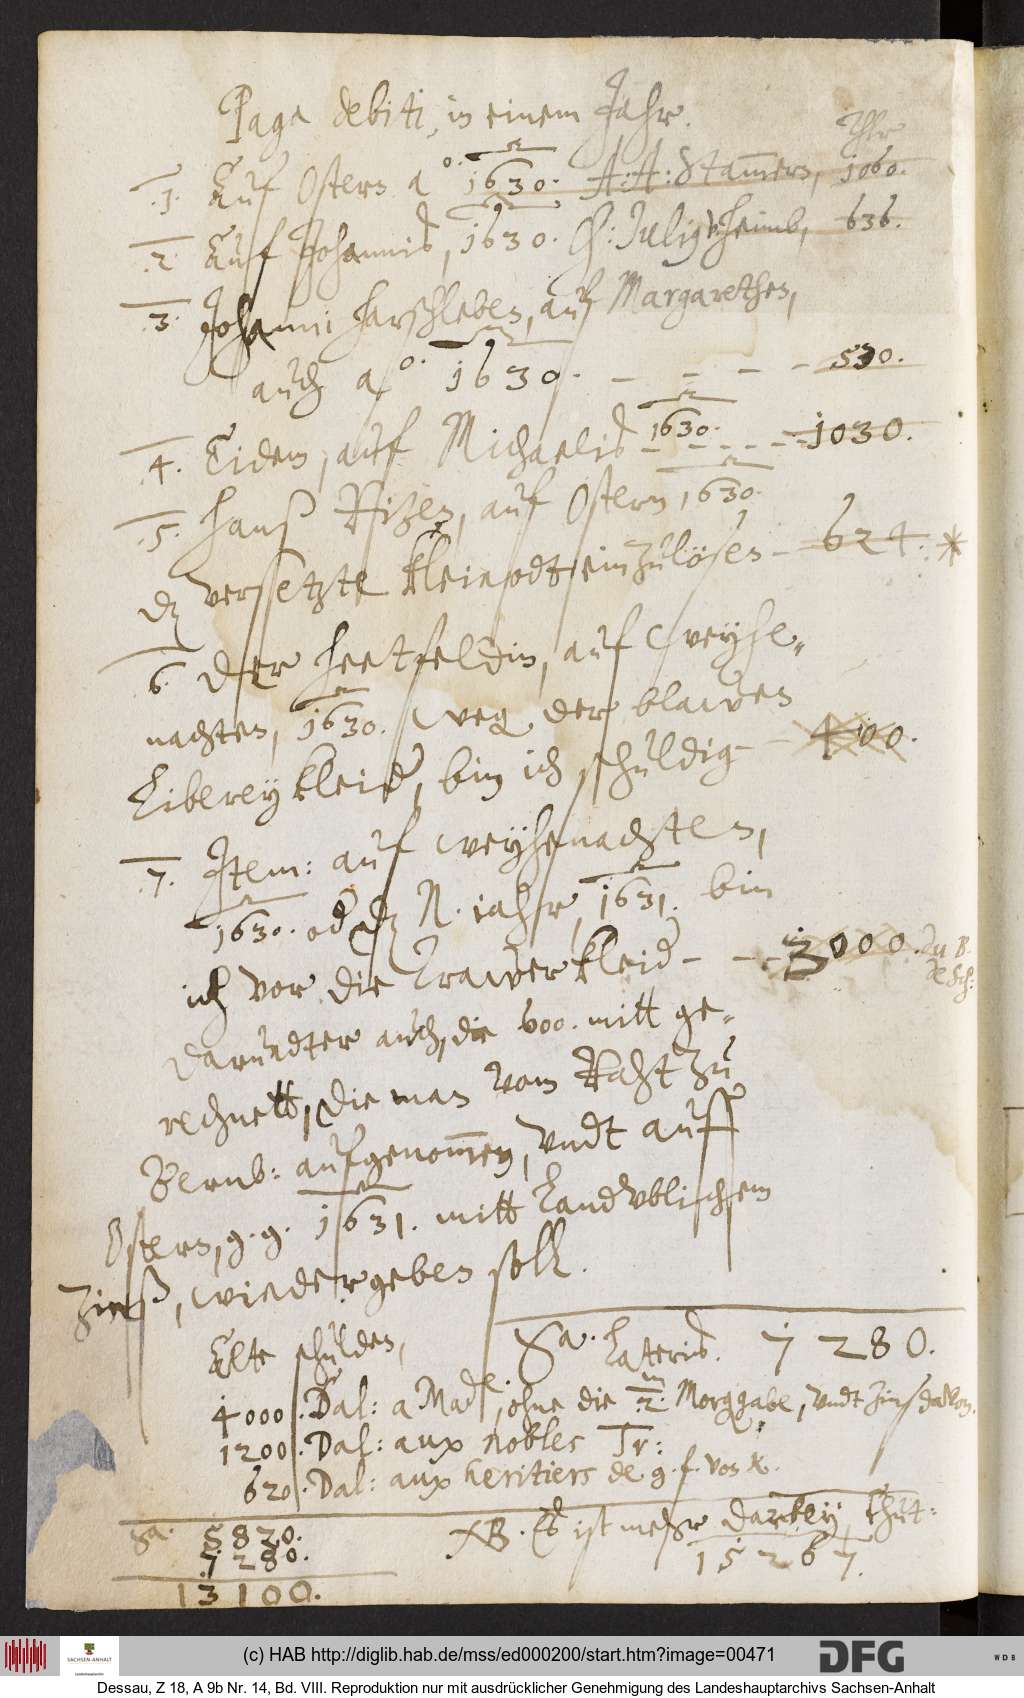 Paga debiti, in einem Jahr.
Thlr
1. Auf Ostern a° 1630. A: A: Stam̄ers, 1060.
2. Auf Johannis, 1630. C: Julig v. heimb, 636.
3. Johanni harschleben, auf Margarethen,
auch a° 1630. - - - - 530.
4. Eidem, auf Michaelis 1630. - - - - 1030.
5. Hanß Ritzen, auf Ostern, 1630.
dz versetzte kleinodt einzulösen - 624. *
6. Der heetfeldin, auf Weyhe-
nachten, 1630. Weg der blawen
Liberey kleider, bin ich schuldig - - 400.
7. Item: auf Weyhenachten,
1630. od dz N. iahr, 1631. bin
ich vor die Trawerkleid - - - 3000. du B.
de Sch:
darundter auch, die 600. mitt ge-
rechnett, die man vom Raht zu
Bernb: aufgenom̄en, undt auff
Ostern, g. g. 1631. mitt Landüblichem
Zinß, wiedergeben soll.
Sa. Lateris. 7280.
Alte schulden,
4000. Dal: a Made, ohne die m/2. Morggabe, undt Zinß davon.
1200. Dal: aux nobles Tr:
620. Dal: aux heritiers de g. f. von K.
Sa. 5820.
7280.
13100.
NB. Es ist mehr darbey, thut:
15267.
(c) HAB http://diglib.hab.de/mss/ed000200/start.htm?image=00471
SACHSEN-ANHALT
Landeshauptarchiv
DFG
WDB
Dessau, Z 18, A 9b Nr. 14, Bd. VIII. Reproduktion nur mit ausdrücklicher Genehmigung des Landeshauptarchivs Sachsen-Anhalt